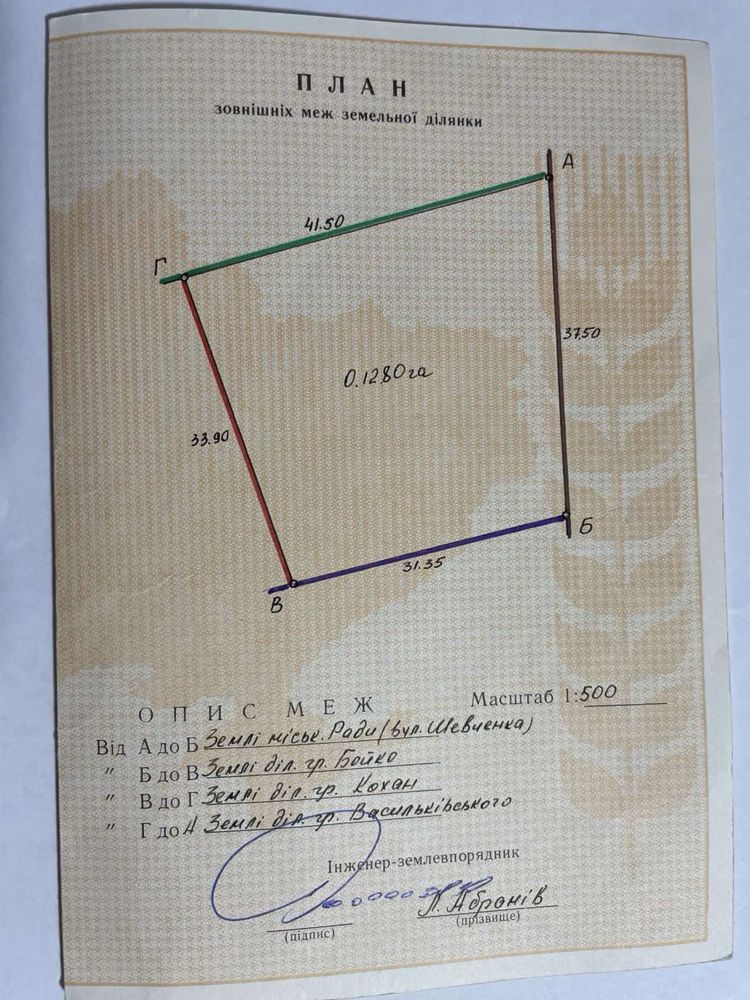 ПЛАН
зовнішніх меж земельної ділянки
А
41.50
Г
37.50
0.1280 га
33.90
Б
31.35
В
Масштаб 1:500
ОПИС МЕЖ
Від А до Б Землі міськ. Ради (вул. Шевченка)
" Б до В Землі діл. гр. Бойко
" В до Г Землі діл. гр. Кохан
" Г до А Землі діл. гр. Васильківського
Інженер-землевпорядник
Л. Абрамів
(підпис) (прізвище)